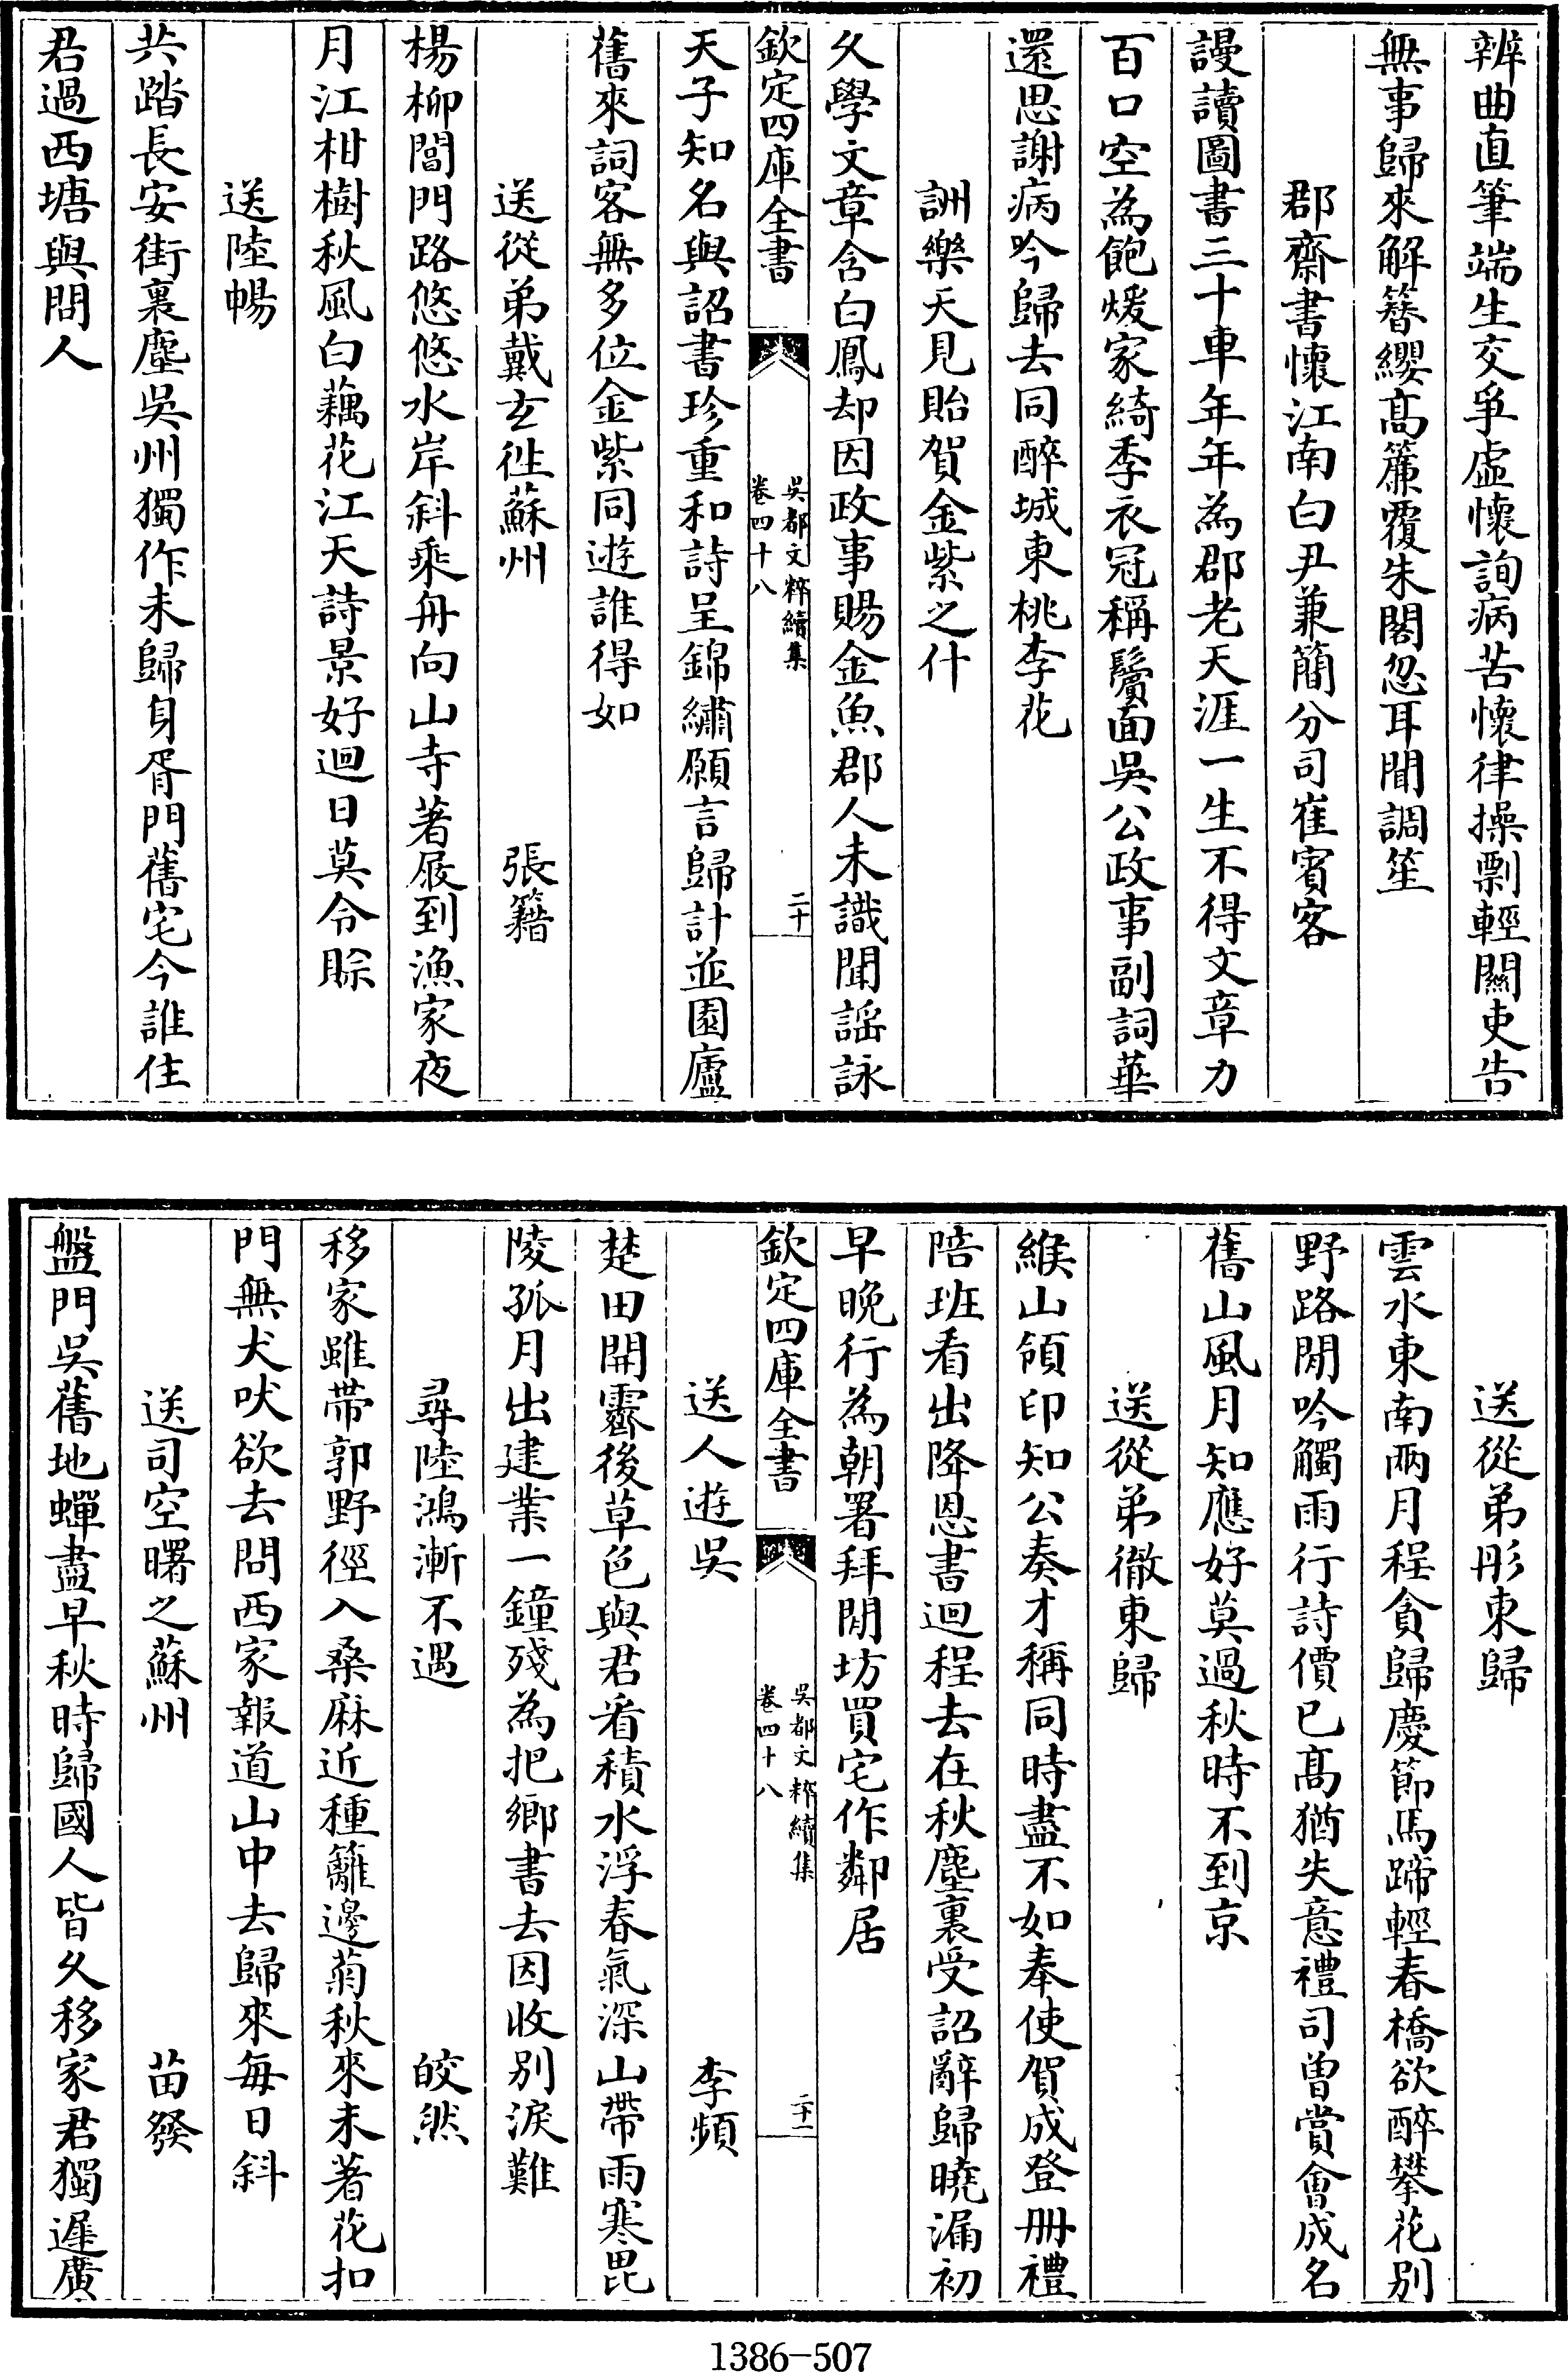 辨曲直筆端生交爭虛懷詢病苦懷律操剽輕闗吏告
無事歸來解簪纓髙簾覆朱閣忽耳聞調笙
郡齋書懷江南白尹兼簡分司崔賓客
謾讀圖書三十車年年為郡老天涯一生不得文章力
百口空為飽煖家綺季衣冠稱鬢面吳公政事副詞華
還思謝病吟歸去同醉城東桃李花
詶樂天見貽賀金紫之什
久學文章含白鳳却因政事賜金魚郡人未識聞謡詠
欽定四庫全書
吳都文粹續集
卷四十八
二十
天子知名與詔書珍重和詩呈錦繡願言歸計並園廬
舊來詞客無多位金紫同遊誰得如
送從弟戴玄往蘇州 張籍
楊柳閶門路悠悠水岸斜乘舟向山寺著屐到漁家夜
月江柑樹秋風白藕花江天詩景好迴日莫令賒
送陸暢
共踏長安街裏塵吳州獨作未歸身胥門舊宅今誰住
君過西塘與問人
送從弟彤東歸
雲水東南兩月程貪歸慶節馬蹄輕春橋欲醉攀花別
野路閒吟觸雨行詩價已髙猶失意禮司曽賞㑹成名
舊山風月知應好莫過秋時不到京
送從弟徹東歸
緱山領印知公奏才稱同時盡不如奉使賀成登冊禮
陪班看出降恩書迴程去在秋塵裏受詔辭歸曉漏初
早晚行為朝署拜閒坊買宅作鄰居
欽定四庫全書
吳都文粹續集
卷四十八
二十一
送人遊吳 李頻
楚田開霽後草色與君看積水浮春氣深山帶雨寒毘
陵孤月出建業一鐘殘為把鄉書去因收別淚難
尋陸鴻漸不遇 皎然
移家雖帶郭野徑入桑麻近種籬邊菊秋來未著花扣
門無犬吠欲去問西家報道山中去歸來每日斜
送司空曙之蘇州 苗發
盤門吳舊地蟬盡早秋時歸國人皆久移家君獨遲廣
1386-507